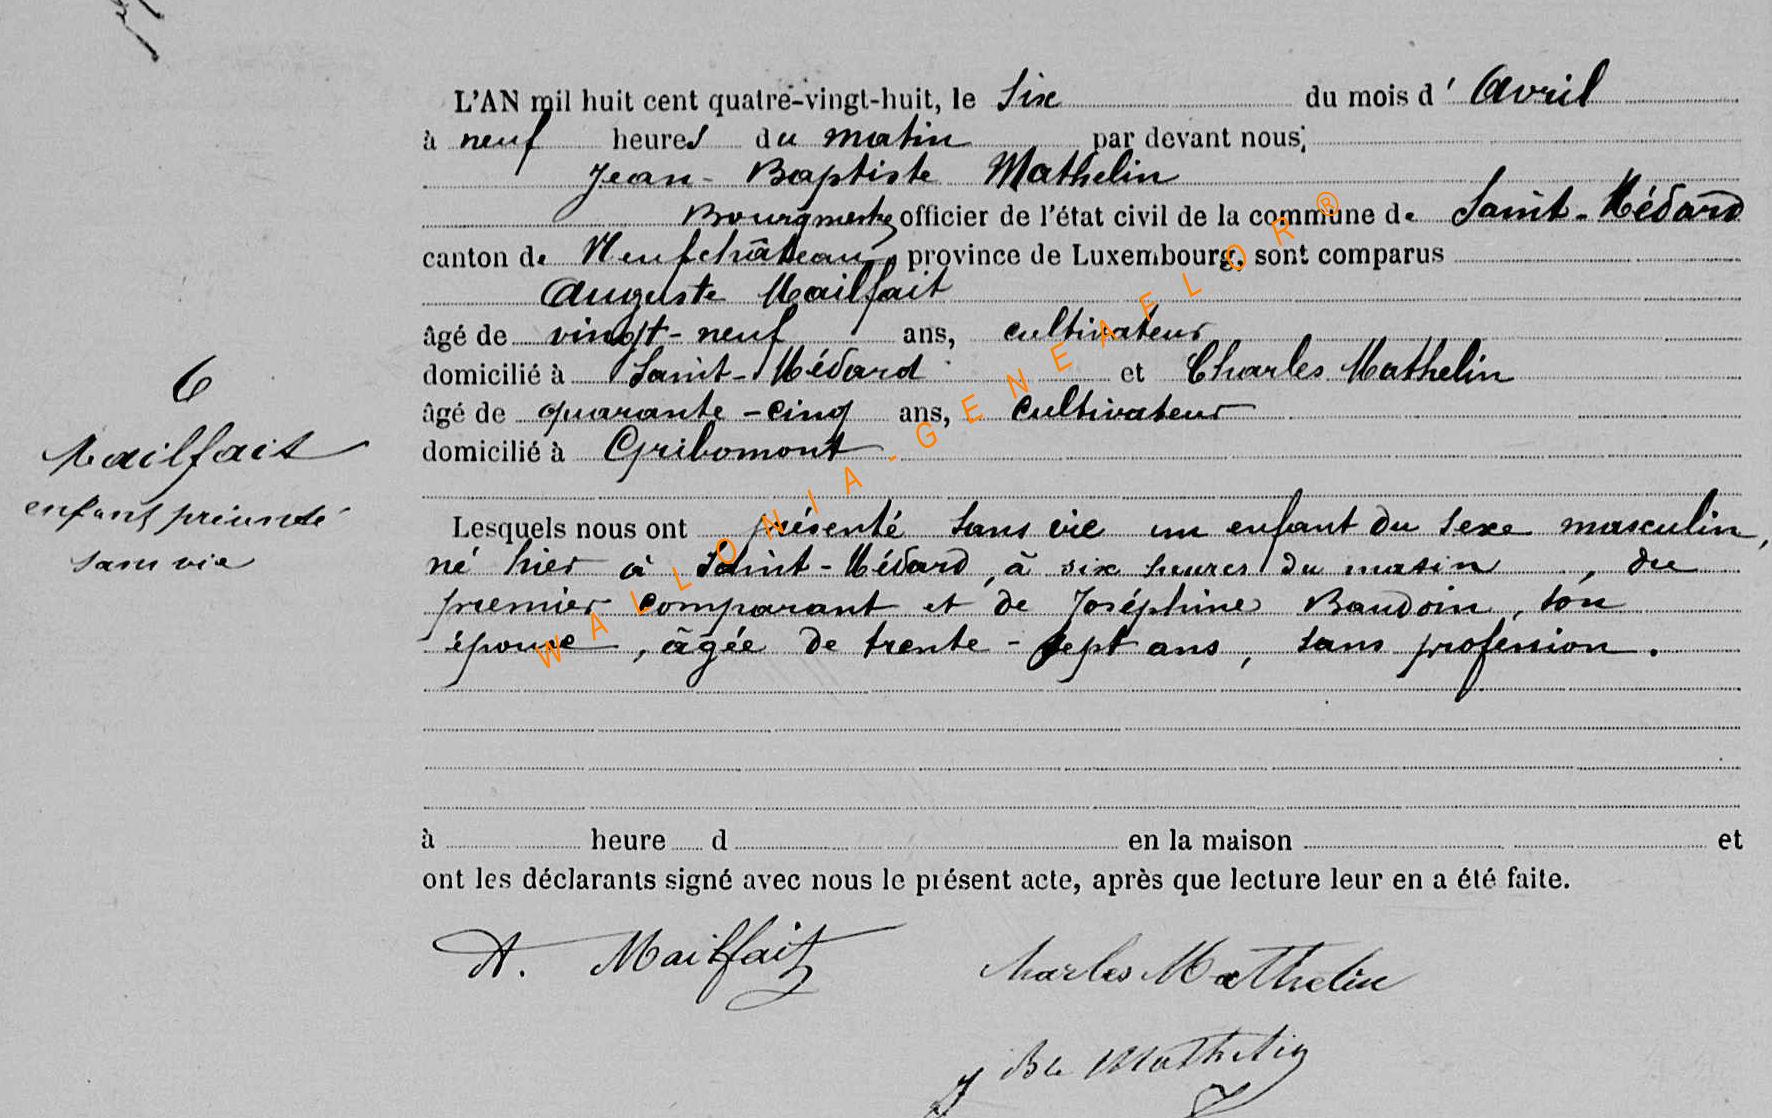 L'AN mil huit cent quatre-vingt-huit, le Six du mois d' Avril
à neuf heures du matin par devant nous,
Jean-Baptiste Mathelin
Bourgmestre, officier de l'état civil de la commune de Saint-Médard
canton de Neufchâteau, province de Luxembourg, sont comparus
Auguste Mailfait
âgé de vingt-neuf ans, cultivateur
domicilié à Saint-Médard et Charles Mathelin
âgé de quarante-cinq ans, cultivateur
domicilié à Gribomont
6
Mailfait
enfant présenté
sans vie
Lesquels nous ont présenté sans vie un enfant du sexe masculin,
né hier à Saint-Médard, à six heures du matin, du
premier comparant et de Joséphine Baudoin, son
épouse, âgée de trente-sept ans, sans profession.
à heure d en la maison et
ont les déclarants signé avec nous le présent acte, après que lecture leur en a été faite.
A. Mailfait Charles Mathelin
J Bte Mathelin
WALLONIA-GENEAFLOR®